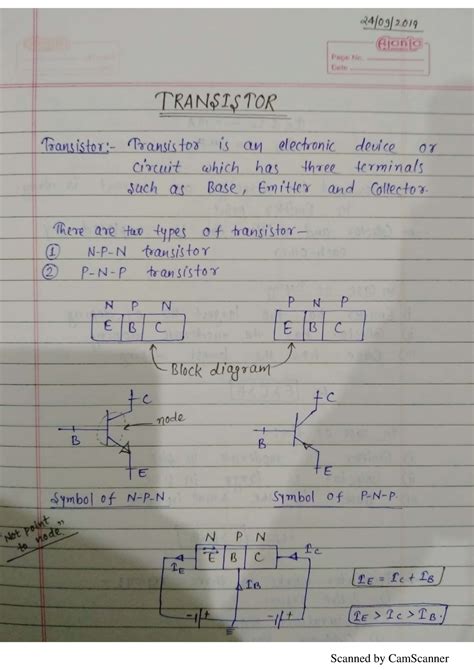 24/09/2019
Page No.
Date
TRANSISTOR
Transistor:- Transistor is an electronic device or
circuit which has three terminals
such as Base, Emitter and Collector
There are two types of transistor—
① N-P-N transistor
② P-N-P transistor
N P N
P N P
E B C
E B C
Block diagram
C
node
B
E
C
B
E
Symbol of N-P-N
Symbol of P-N-P
"Not point
to node"
N P N
E B C
IE
IC
IB
E
IE = IC + IB
IE > IC > IB.
Scanned by CamScanner